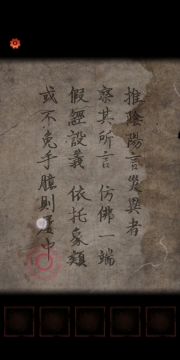 推陰陽言災異者
察其所言 仿佛一端
假經設義 依托象類
或不免乎億則屢中